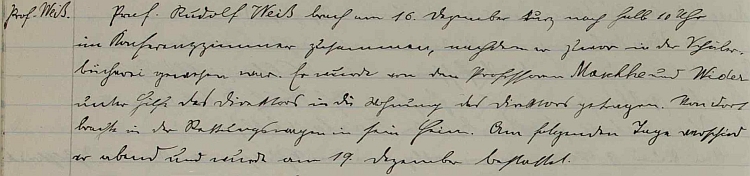 Prof. Weiß. Prof. Rudolf Weiß brach am 16. Dezember kurz nach halb 10 Uhr
im Konferenzzimmer zusammen, nachdem er zuvor in der Schüler-
bücherei gewesen war. Er wurde von den Professoren Maschke und Wieder
unter Hilfe des Direktors in die Wohnung des Direktors getragen. Von dort
brachte in der Rettungswagen in sein Heim. Am folgenden Tage verschied
er abend und wurde am 19. Dezember bestattet.